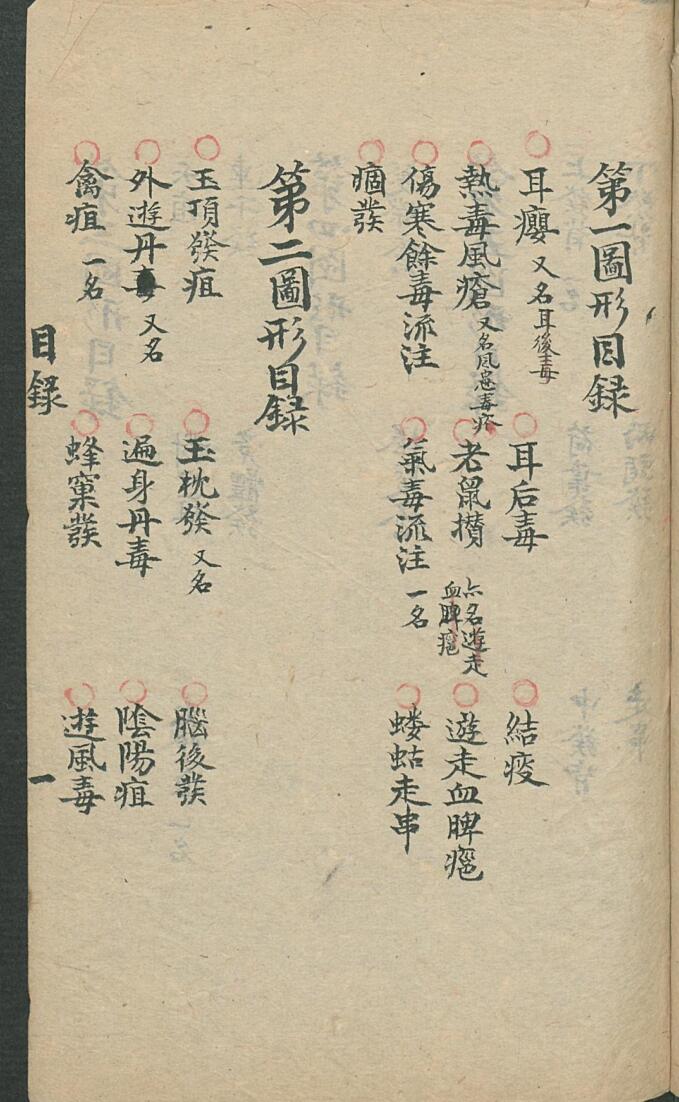 第一圖形目録
耳癭 又名耳後毒 耳后毒 結疫
熱毒風瘡 又名風惡毒瘡 老鼠攢 亦名遊走血脾瘤 遊走血脾瘤
傷寒餘毒流注 氣毒流注 一名 螻蛄走串
痼發
第二圖形目録
玉頂發疽 玉枕發 又名 腦後發
外遊丹毒 又名 遍身丹毒 陰陽疽
禽疽 一名 蜂窠發 遊風毒
目録 一